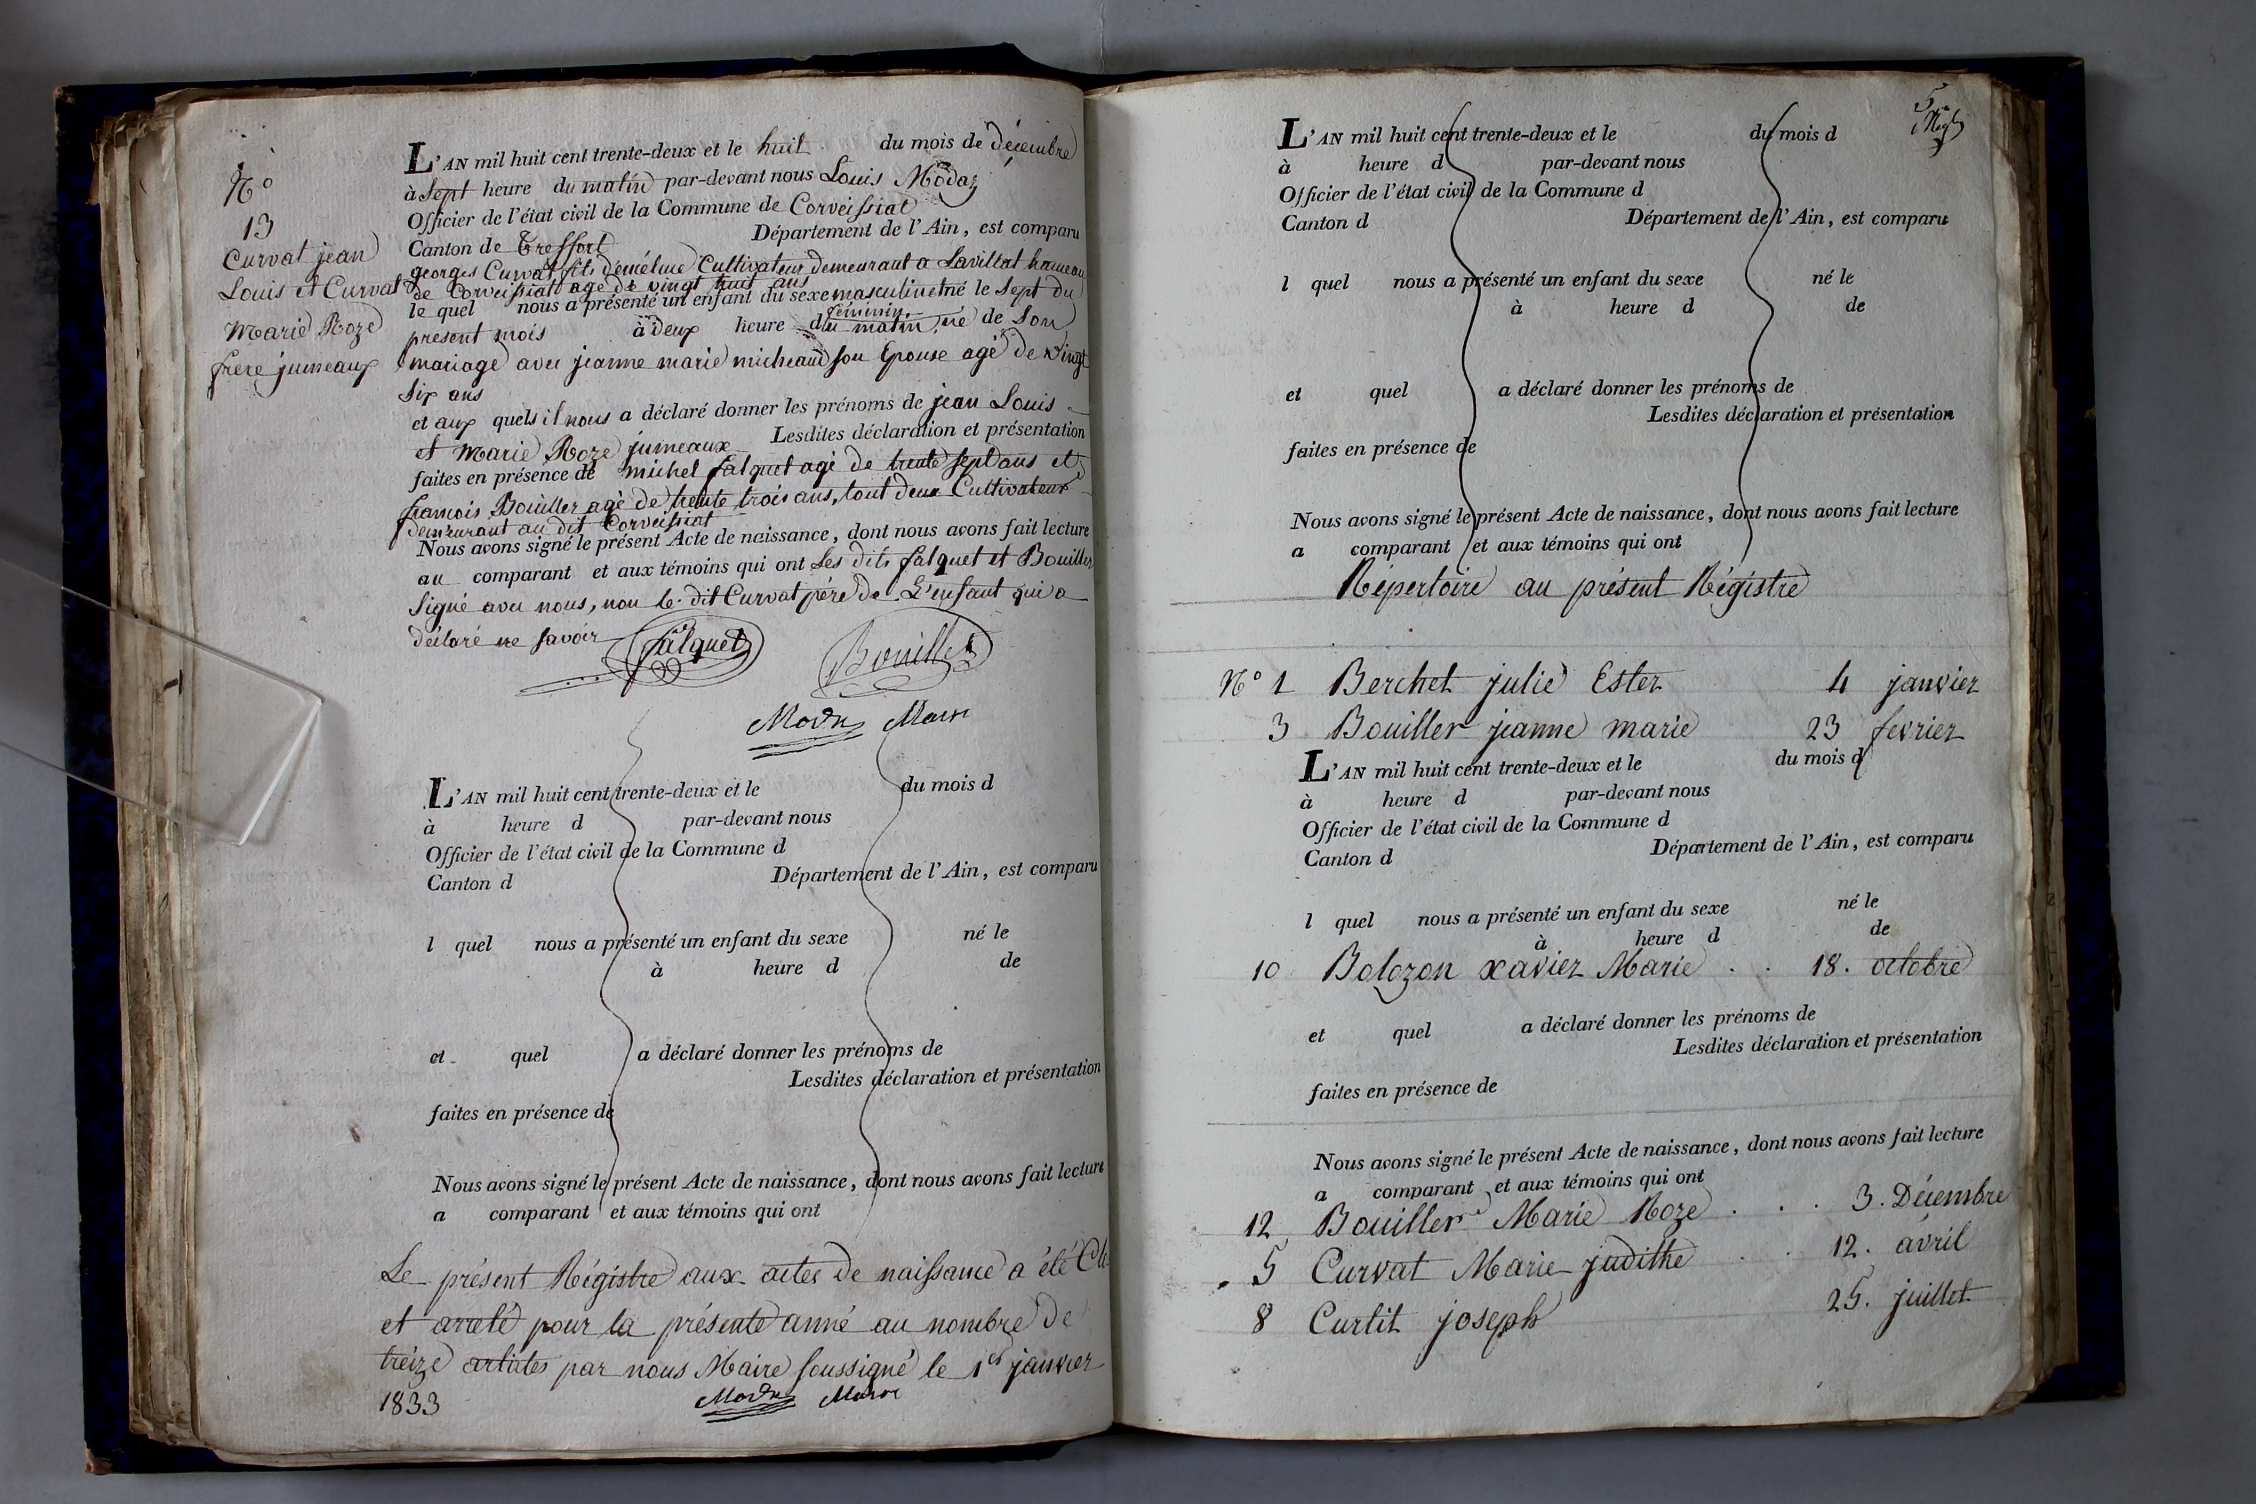 N°
13
Curvat jean
Louis et Curvat
Marie Roze
frere jumeaux
L'AN mil huit cent trente-deux et le huit du mois de décembre
à Sept heure du matin par-devant nous Louis Modaz
Officier de l'état civil de la Commune de Corveissiat
Canton de Treffort Département de l'Ain, est comparu
georges Curvat fils d'éméline Cultivateur demeurant a Lavillat hameau
de Corveissiat agé de vingt huit ans
le quel nous a présenté un enfant du sexe masculin et né le Sept du
féminin
present mois à deux heure du matin, né de Son
mariage avec jeanne marie micheaud son Epouse agé de vingt
Six ans
et aux quels il nous a déclaré donner les prénoms de jean Louis
et Marie Roze jumeaux Lesdites déclaration et présentation
faites en présence de michel falquet agé de trente sept ans et
francois Bouiller agé de trente trois ans, tout deux Cultivateur
demeurant au dit Corveissiat
Nous avons signé le présent Acte de naissance, dont nous avons fait lecture
au comparant et aux témoins qui ont Les dits falquet et Bouiller
Signé avec nous, non le dit Curvat père de L'enfant qui a
déclaré ne savoir falquet Bouiller
Modaz Maire
L'AN mil huit cent trente-deux et le du mois d
à heure d par-devant nous
Officier de l'état civil de la Commune d
Canton d Département de l'Ain, est comparu
l quel nous a présenté un enfant du sexe né le
à heure d de
et quel a déclaré donner les prénoms de
Lesdites déclaration et présentation
faites en présence de
Nous avons signé le présent Acte de naissance, dont nous avons fait lecture
a comparant et aux témoins qui ont
Le présent Régistre aux actes de naissance a été
et arreté pour la présente anné au nombre de
treize articles par nous Maire soussigné le 1er janvier
1833 Modaz Maire
5
L'AN mil huit cent trente-deux et le du mois d
à heure d par-devant nous
Officier de l'état civil de la Commune d
Canton d Département de l'Ain, est comparu
l quel nous a présenté un enfant du sexe né le
à heure d de
et quel a déclaré donner les prénoms de
Lesdites déclaration et présentation
faites en présence de
Nous avons signé le présent Acte de naissance, dont nous avons fait lecture
a comparant et aux témoins qui ont
Répertoire au présent Régistre
N° 1 Berchet julie Ester 4 janvier
3 Bouiller jeanne marie 23 fevrier
L'AN mil huit cent trente-deux et le du mois d
à heure d par-devant nous
Officier de l'état civil de la Commune d
Canton d Département de l'Ain, est comparu
l quel nous a présenté un enfant du sexe né le
à heure d de
10 Bolozon xavier Marie . . 18. octobre
et quel a déclaré donner les prénoms de
Lesdites déclaration et présentation
faites en présence de
Nous avons signé le présent Acte de naissance, dont nous avons fait lecture
a comparant et aux témoins qui ont
12 Bouiller Marie Roze . . . 3. Décembre
5 Curvat Marie judithe . . 12. avril
8 Curtit joseph 25. juillet